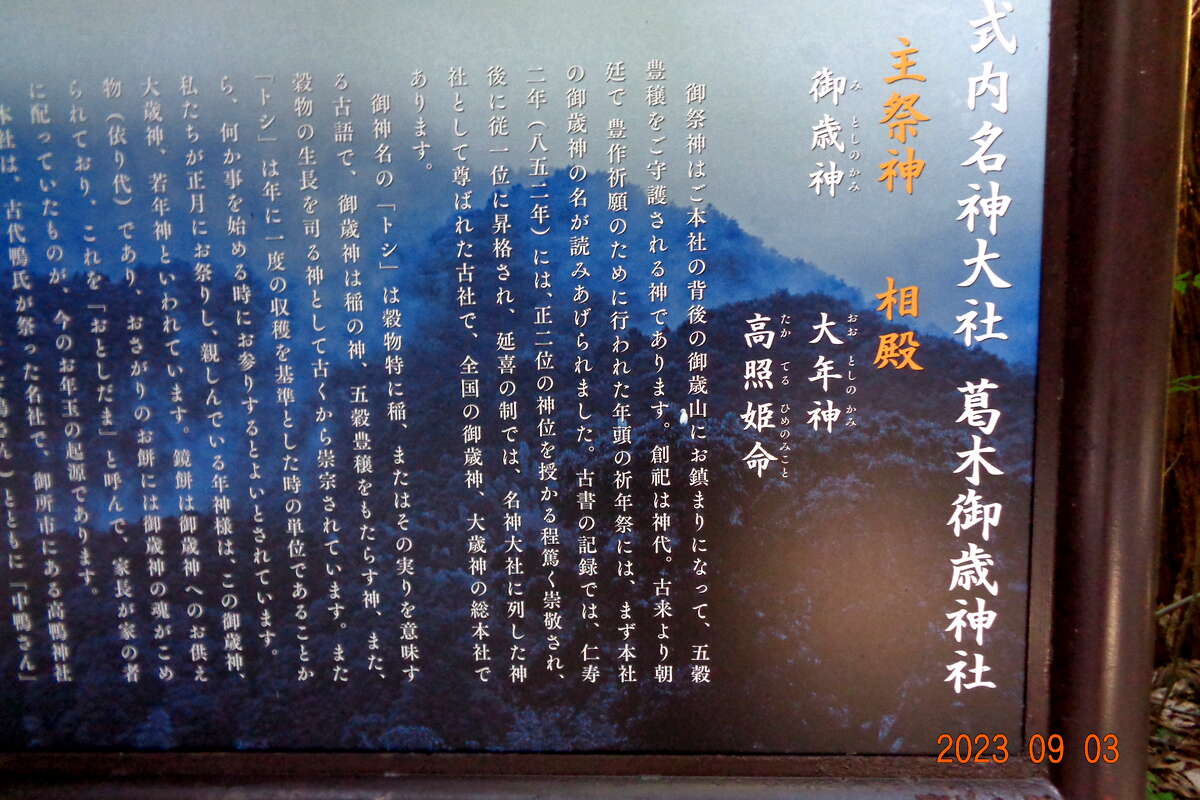 式内名神大社 葛木御歳神社
主祭神 相殿
御歳神 大年神
み としのかみ おお としの かみ
高照姫命
たか てる ひめのみこと
御祭神はご本社の背後の御歳山にお鎮まりになって、五穀
豊穣をご守護される神であります。創祀は神代。古来より朝
廷で豊作祈願のために行われた年頭の祈年祭には、まず本社
の御歳神の名が読みあげられました。古書の記録では、仁寿
二年(八五二年)には、正二位の神位を授かる程篤く崇敬され、
後に従一位に昇格され、延喜の制では、名神大社に列した神
社として尊ばれた古社で、全国の御歳神、大歳神の総本社で
あります。
御神名の「トシ」は穀物特に稲、またはその実りを意味す
る古語で、御歳神は稲の神、五穀豊穣をもたらす神、また、
穀物の生長を司る神として古くから崇宗されています。また
「トシ」は年に一度の収穫を基準とした時の単位であることか
ら、何か事を始める時にお参りするとよいとされています。
私たちが正月にお祭りし、親しんでいる年神様は、この御歳神、
大歳神、若年神といわれています。鏡餅は御歳神へのお供え
物(依り代)であり、おさがりのお餅には御歳神の魂がこめ
られており、これを「おとしだま」と呼んで、家長が家の者
に配っていたものが、今のお年玉の起源であります。
本社は、古代鴨氏が祭った名社で、御所市にある高鴨神社
鴨さん)とともに「中鴨さん」
2023 09 03